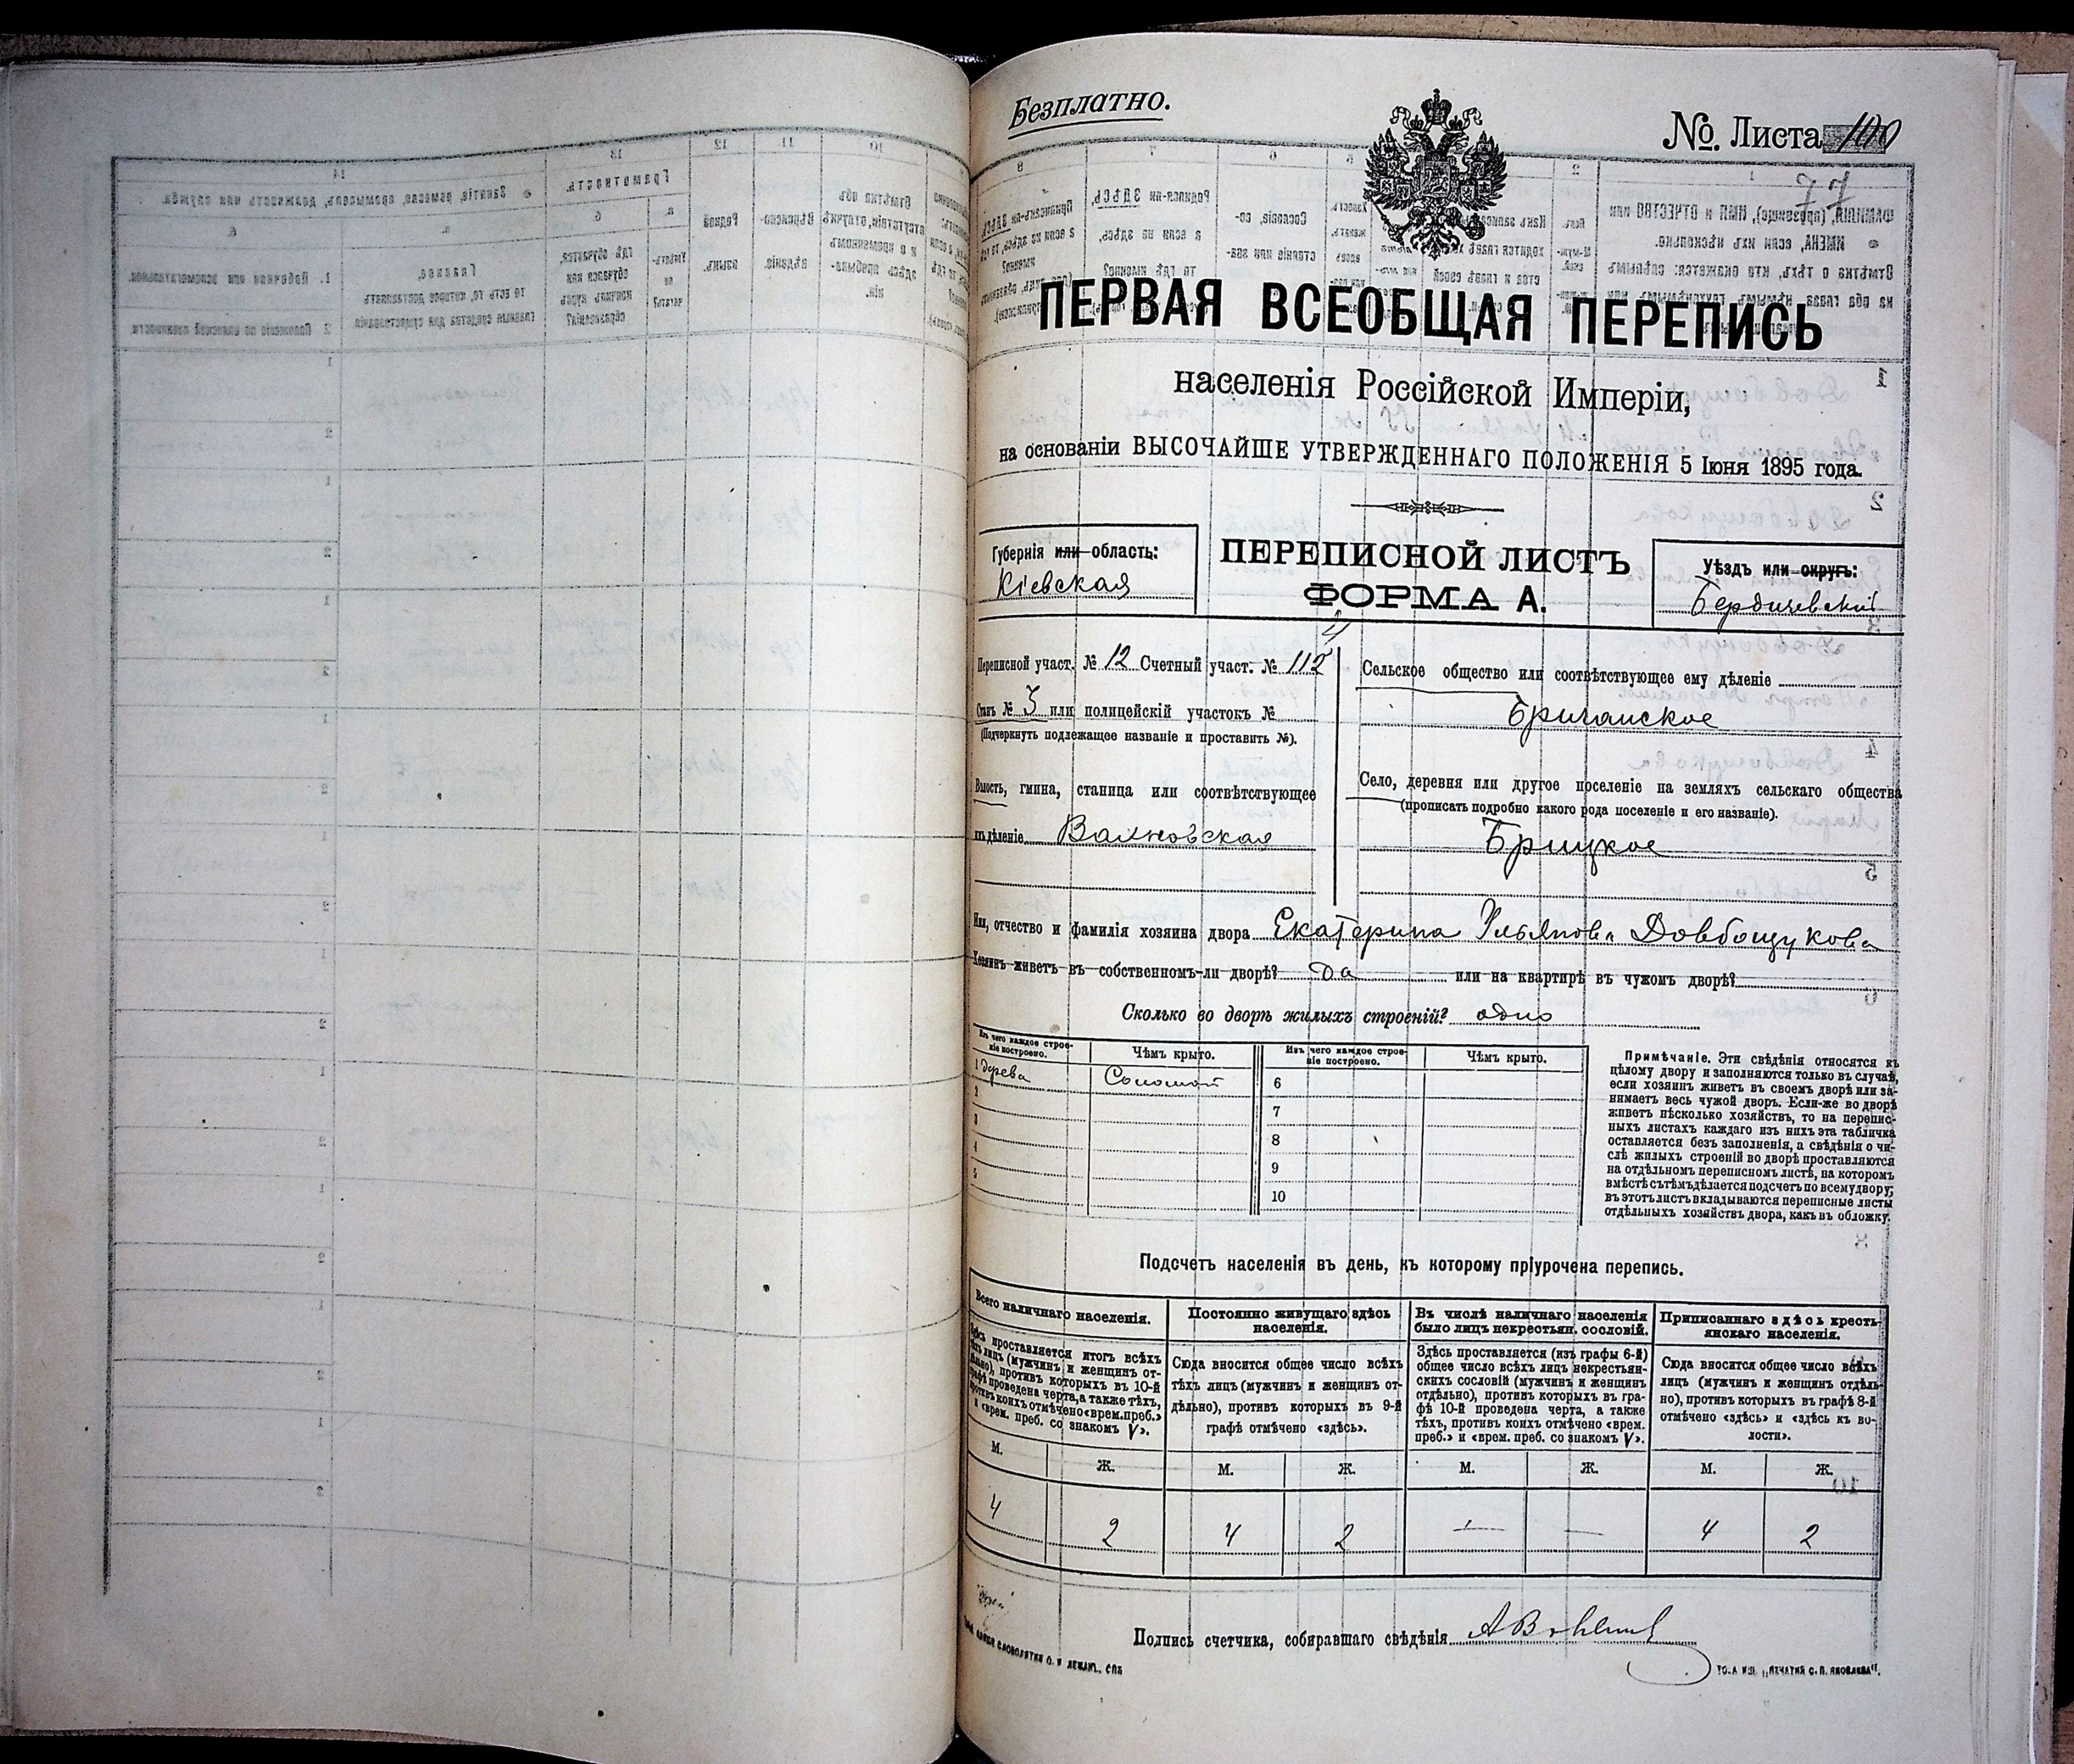 Безплатно.
№. Листа 100
77
ПЕРВАЯ ВСЕОБЩАЯ ПЕРЕПИСЬ
населенія Россійской Имперіи,
на основаніи ВЫСОЧАЙШЕ УТВЕРЖДЕННАГО ПОЛОЖЕНІЯ 5 Іюня 1895 года.
Губернія или область:
Кіевская
ПЕРЕПИСНОЙ ЛИСТЪ
ФОРМА А.
Уѣздъ или округъ:
Бердичевскій
Переписной участ. № 12 Счетный участ. № 112
Станъ № 3 или полицейскій участокъ №
(Подчеркнуть подлежащее названіе и проставить №).
Волость, гмина, станица или соотвѣтствующее
имъ дѣленіе
Сельское общество или соотвѣтствующее ему дѣленіе
Село, деревня или другое поселеніе на земляхъ сельскаго общества
(прописать подробно какого рода поселеніе и его названіе).
Брицкое
Имя, отчество и фамилія хозяина двора Екатерина Ульянова Довбощукова
Хозяинъ живетъ въ собственномъ-ли дворѣ? да или на квартирѣ въ чужомъ дворѣ?
Сколько во дворѣ жилыхъ строеній? одно
Изъ чего каждое строе-
ніе построено.
Чѣмъ крыто.
Изъ чего каждое строе-
ніе построено.
Чѣмъ крыто.
1 дерева Соломой 6
2 7
3 8
4 9
5 10
Примѣчаніе. Эти свѣдѣнія относятся къ
цѣлому двору и заполняются только въ случаѣ,
если хозяинъ живетъ въ своемъ дворѣ или за-
нимаетъ весь чужой дворъ. Если-же во дворѣ
живетъ нѣсколько хозяйствъ, то на перепис-
ныхъ листахъ каждаго изъ нихъ эта табличка
оставляется безъ заполненія, а свѣдѣнія о чи-
слѣ жилыхъ строеній во дворѣ проставляются
на отдѣльномъ переписномъ листѣ, на которомъ
вмѣстѣ съ тѣмъ дѣлается подсчетъ по всему двору;
въ этотъ листъ вкладываются переписные листы
отдѣльныхъ хозяйствъ двора, какъ въ обложку.
Подсчетъ населенія въ день, къ которому пріурочена перепись.
Всего наличнаго населенія.
Здѣсь проставляется итогъ всѣхъ
тѣхъ лицъ (мужчинъ и женщинъ от-
дѣльно), противъ которыхъ въ 10-й
графѣ проведена черта, а также тѣхъ,
противъ коихъ отмѣчено «врем. преб.»
и «врем. преб. со знакомъ V».
Постоянно живущаго здѣсь
населенія.
Сюда вносится общее число всѣхъ
тѣхъ лицъ (мужчинъ и женщинъ от-
дѣльно), противъ которыхъ въ 9-й
графѣ отмѣчено «здѣсь».
Въ числѣ наличнаго населенія
было лицъ некрестьян. сословій.
Здѣсь проставляется (изъ графы 6-й)
общее число всѣхъ лицъ некрестьян-
скихъ сословій (мужчинъ и женщинъ
отдѣльно), противъ которыхъ въ гра-
фѣ 10-й проведена черта, а также
тѣхъ, противъ коихъ отмѣчено «врем.
преб.» и «врем. преб. со знакомъ V».
Приписаннаго здѣсь кресть-
янскаго населенія.
Сюда вносится общее число всѣхъ
лицъ (мужчинъ и женщинъ отдѣль-
но), противъ которыхъ въ графѣ 8-й
отмѣчено «здѣсь» и «здѣсь къ во-
лости».
М. Ж. М. Ж. М. Ж. М. Ж.
4 2 4 2 — — 4 2
Подпись счетчика, собиравшаго свѣдѣнія